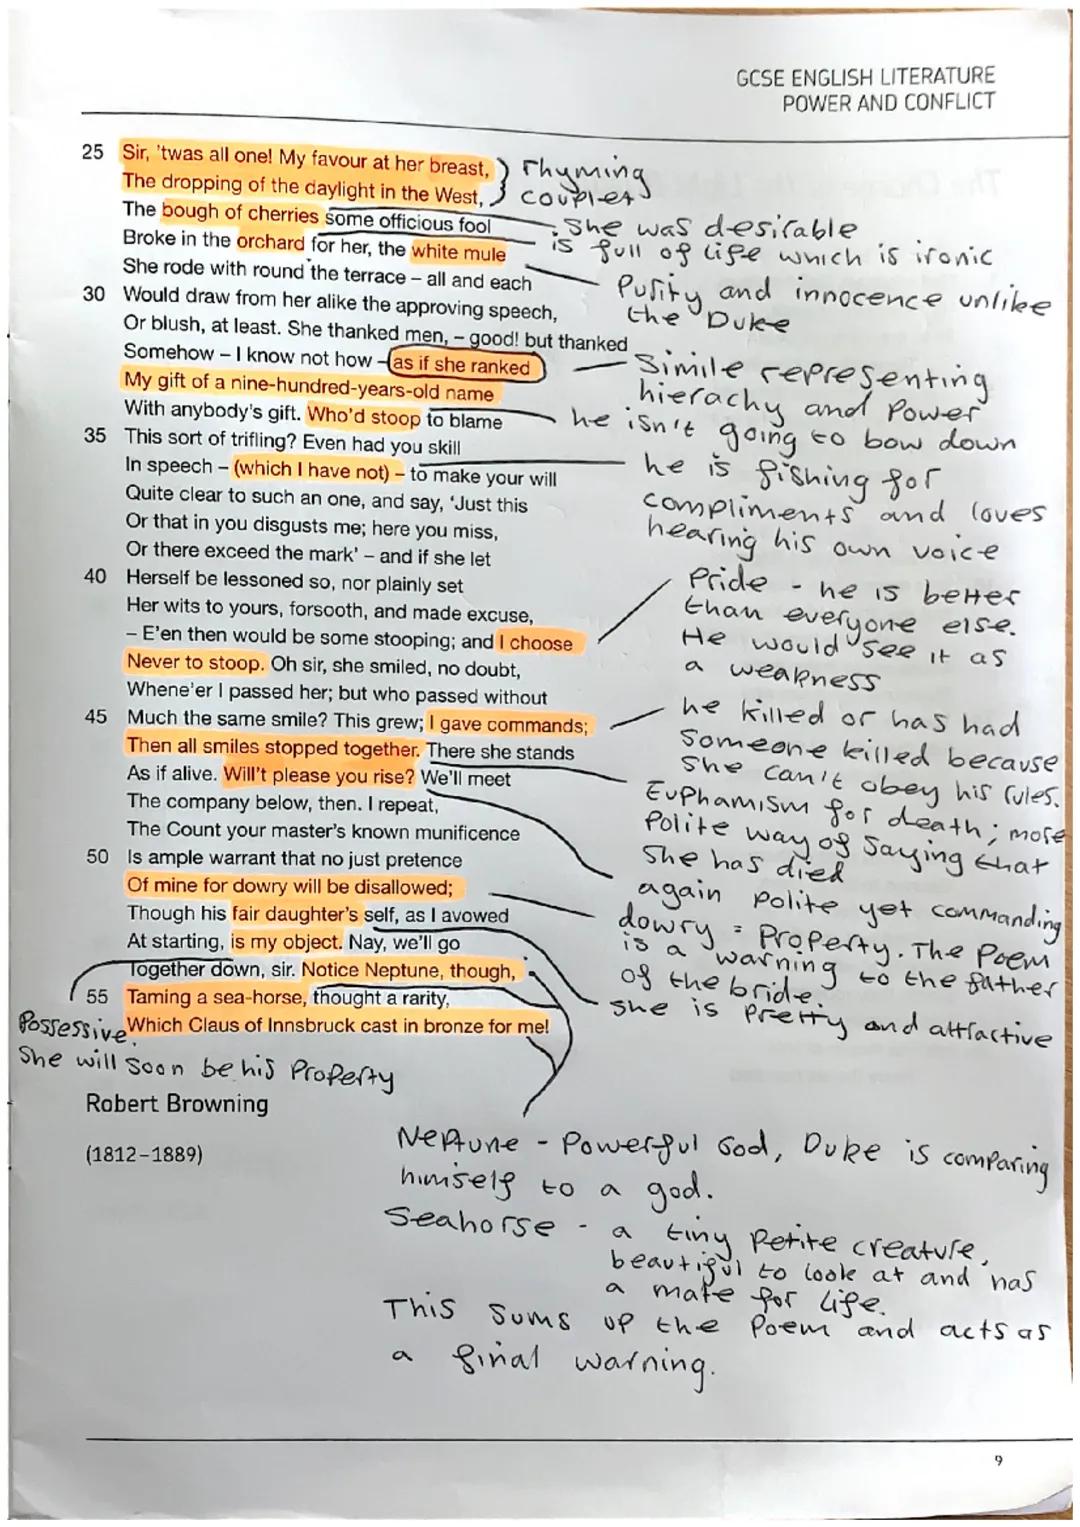 GCSE ENGLISH LITERATURE
POWER AND CONFLICT
25 Sir, 'twas all one! My favour at her breast,
The dropping of the daylight in the West,
rhyming
couplet
The bough of cherries some officious fool
Broke in the orchard for her, the white mule
She rode with round the terrace – all and each
30 Would draw from her alike the approving speech,
Or blush, at least. She thanked men, – good! but thanked
Somehow – I know not how – as if she ranked
My gift of a nine-hundred-years-old name
With anybody's gift. Who'd stoop to blame
35 This sort of trifling? Even had you skill
In speech – (which I have not) – to make your will
Quite clear to such an one, and say, 'Just this
Or that in you disgusts me; here you miss,
Or there exceed the mark' – and if she let
40 Herself be lessoned so, nor plainly set
Her wits to yours, forsooth, and made excuse,
– E'en then would be some stooping; and I choose
Never to stoop. Oh sir, she smiled, no doubt,
Whene'er I passed her; but who passed without
45 Much the same smile? This grew; I gave commands;
Then all smiles stopped together. There she stands
As if alive. Will't please you rise? We'll meet
The company below, then. I repeat,
The Count your master's known munificence
50 Is ample warrant that no just pretence
Of mine for dowry will be disallowed;
Though his fair daughter's self, as I avowed
At starting, is my object. Nay, we'll go
Together down, sir. Notice Neptune, though,
55 Taming a sea-horse, thought a rarity,
Which Claus of Innsbruck cast in bronze for me!
She was desirable
is full of life which is ironic
Purity and innocence unlike
the Duke
Simile representing
hierachy and Power
he isn't going to bow down
he is fishing for
compliments and loves
hearing his own voice
Pride - he is better
than everyone else.
He would see it as
a weakness
he killed or has had
Someone killed because
she can't obey his rules.
Euphamism for death; more
Polite way of saying that
she has died
again polite yet commanding
dowry = Property. The Poem
is a warning to the father
of the bride.
she is pretty and attractive
Possessive
She will soon be his Property
Robert Browning
(1812–1889)
Neptune - Powerful God, Duke is comparing
himself to a god.
Seahorse - a tiny petite creature,
beautiful to look at and has
a mate for life.
This sums up the Poem and acts as
a final warning.
9